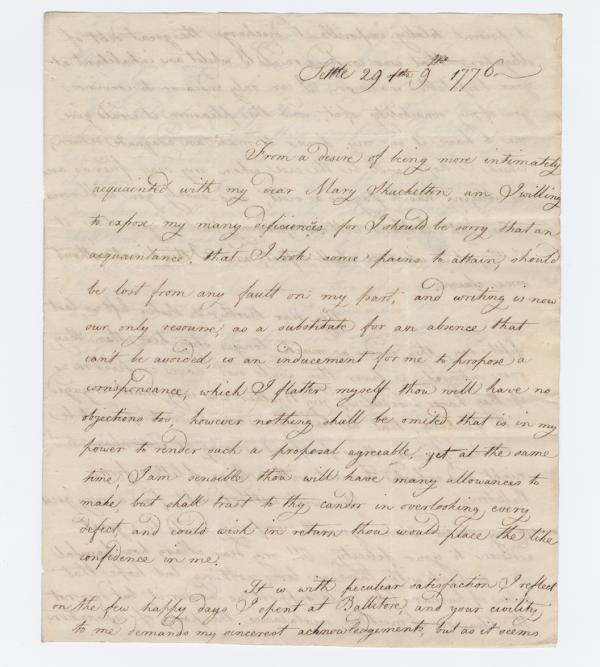 Settle 29 of the 9th 1776
From a desire of being more intimately
acquainted with my dear Mary Shackelton am I willing
to expose my many deficiences for I should be sorry that an
acquaintance, that I took some pains to attain, should
be lost from any fault on my part, and writing is now
our only resourse, as a substitute for an absence that
can't be avoided, is an inducement for me to propose a
corrispondance, which I flatter myself thou will have no
objections too, however nothing shall be omited that is in my
power to render such a proposal agreable, yet at the same
time, I am sensible thou will have many allowances to
make, but shall trust to thy candor in overlooking every
defect, and could wish in return thou would place the like
confidence in me.
It is with peculiar satisfaction I reflect
on the few happy days I spent at Ballitore, and your civility,
to me demands my sincerest acknowledgements, but as it seems